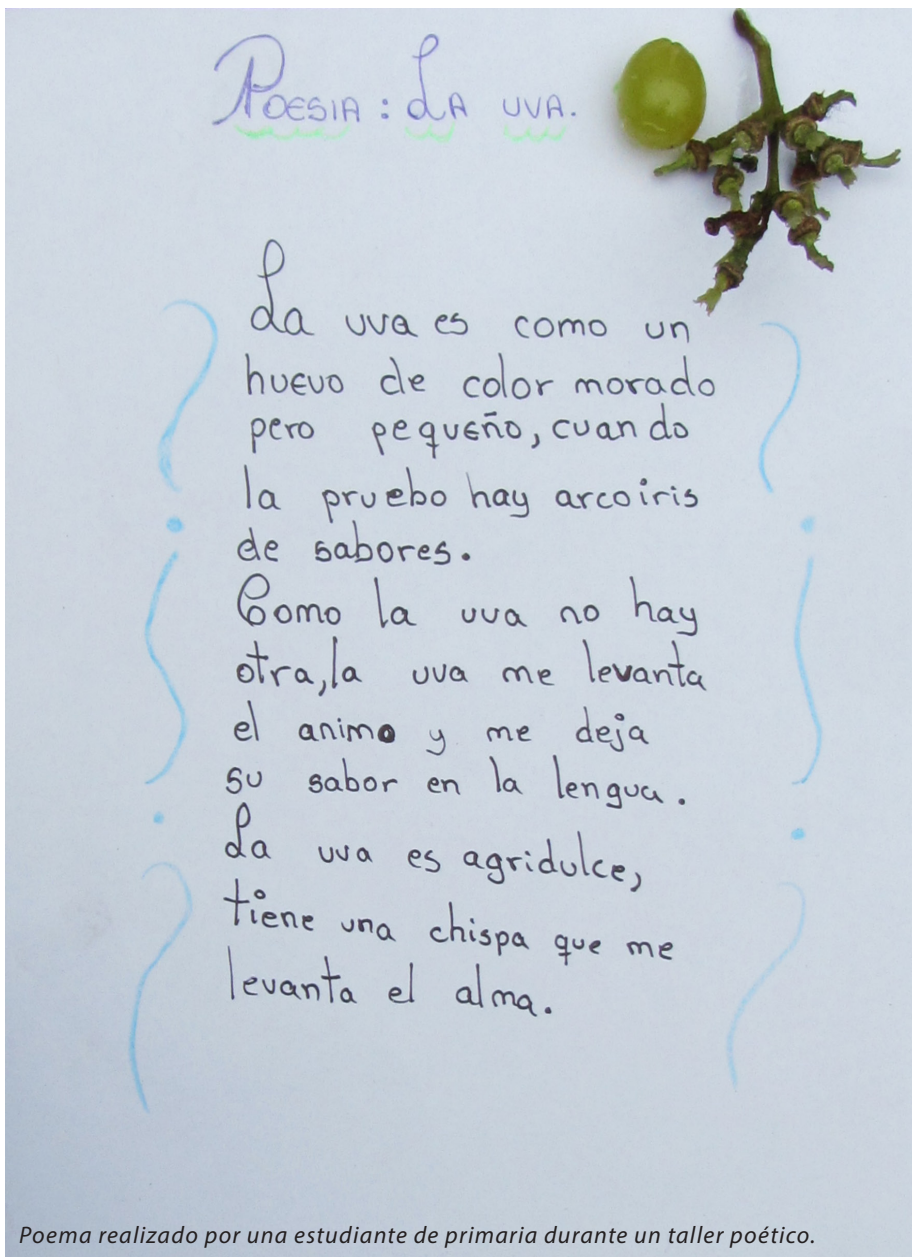 POESIA: LA UVA.
La uva es como un
huevo de color morado
pero pequeño, cuando
la pruebo hay arcoiris
de sabores.
Como la uva no hay
otra, la uva me levanta
el animo y me deja
su sabor en la lengua.
La uva es agridulce,
tiene una chispa que me
levanta el alma.
Poema realizado por una estudiante de primaria durante un taller poético.